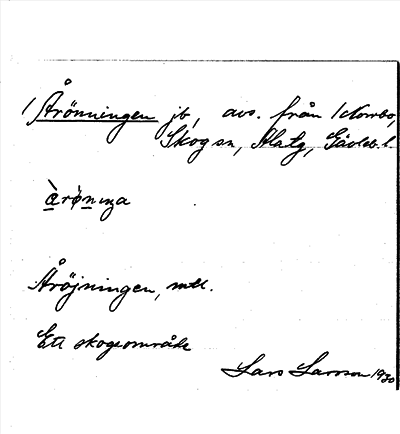 1/ Årönningen jb, avs. från 1 Norrbo,
Skog sn, Ala tg, Gävleb. l.
àrøniŋa
Åröjningen, mtl.
Ett skogsområde
Lars Larsson 1930